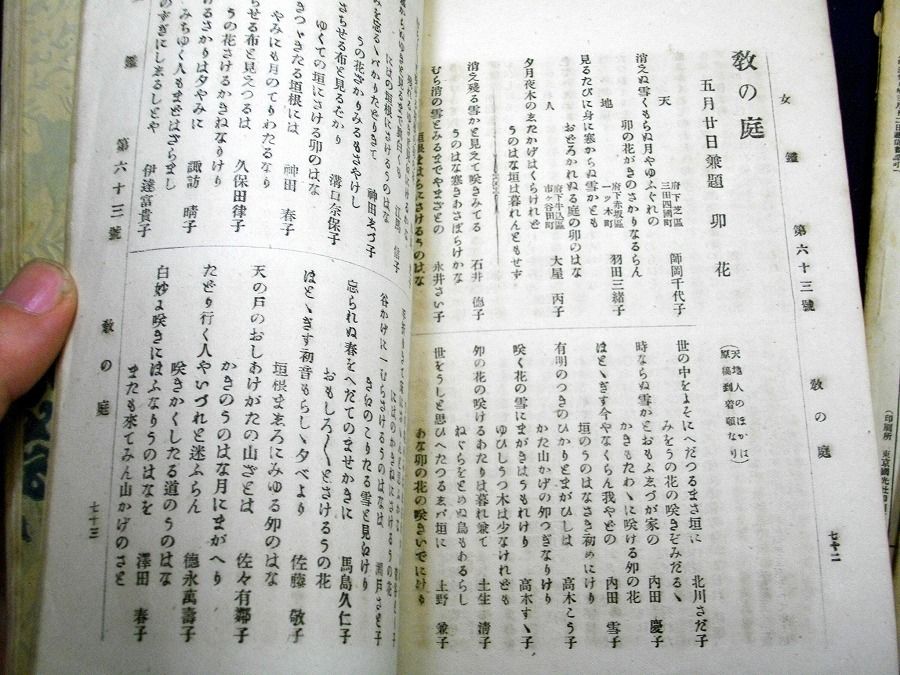 女鑑 第六十三號 敎の庭 七十二
敎の庭
五月廿日兼題 卯花
(天地人のほかは
原稿到着順なり)
天 府下芝區
三田四國町 師岡千代子
消えぬ雪くもらぬ月やゆふぐれの
卯の花がきのさかりなるらん
地 府下赤坂區
一ツ木町 羽田三緒子
見るたびに身に寒からぬ雪かとも
おどろかれぬる庭の卯のはな
人 府下牛込區
市ヶ谷田町 大屋丙子
夕月夜木のゑたかげはくらけれど
うのはな垣は暮れんともせず
消え殘る雪かと見えて咲きみてる 石井德子
うのはな寒きあさぼらけかな
むら消の雪とみるまでやまざとの 永井さい子
垣根まばらにさけるうのはな
世の中をよそにへだつるまさ垣に 北川さだ子
みをうの花の咲きぞみだるゝ
時ならぬ雪かとおもふゑづが家の 內田慶子
かきもたわゝに咲ける卯の花
ほとゝぎす今やなくらん我やどの 內田雪子
垣のうのはなさき初めにけり
有明のつきのひかりとまがひしは 高木こう子
かた山かげの卯つぎなりけり
咲く花の雪にまがきはうもれけり 高木すゝ子
ゆひしうつ木は少なけれども
卯の花の咲けるあたりは暮れ兼て 土生淸子
ねぐらをとめぬ鳥もあるらし
世をうしと思ひへたつるゑば垣に 上野兼子
あな卯の花の咲きいでにけり
江馬信子
にはの垣根にさけるうのはな
神田そづ子
うの花ざかりみるもさやけし
溝口奈保子
さらせる布と見るばかり
ゆくての垣にさける卯のはな
きつゞきたる垣根には 神田春子
やみにも月のてりわたるなり
らせる布と見えつるは 久保田律子
うの花さけるかきねなりけり
けるさかりは夕やみに 諏訪晴子
みちゆく人もまどはざらまし
伊達富貴子
のすぎにしゑるしとや
瀨戸さと子
谷かけに一むらさけるうのはなは
きゑのこりたる雪と見ゆけり
忘られぬ春をへだてのませかきに 馬島久仁子
おもしろくとさけるうの花
ほとゝぎす初音もらしゝ夕べより 佐藤敬子
垣根ましろにみゆる卯のはな
天の戸のおしあけがたの山ざとは 佐々有鄰子
かきのうのはな月にまがへり
たどり行く人やいづれと迷ふらん 德永萬壽子
咲きかくしたる道のうのはな
白妙に咲きにほふなりうのはなを 澤田春子
またも來てみん山かげのさと
鑑 第六十三號 敎の庭 七十三
(印刷所 東京國光社印刷